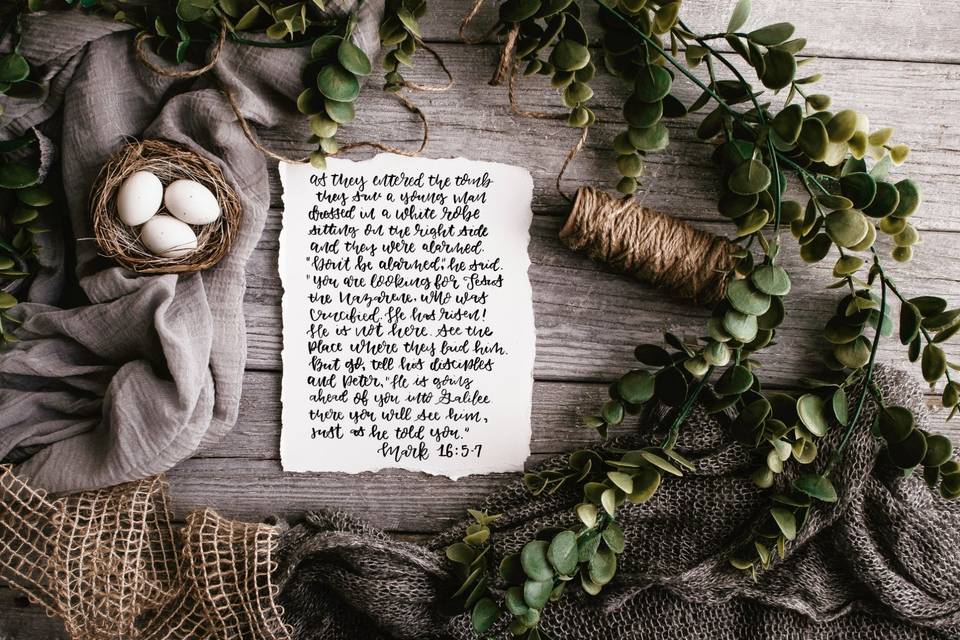 as they entered the tomb
they saw a young man
dressed in a white robe
sitting on the right side
and they were alarmed.
"Don't be alarmed," he said.
"You are looking for Jesus
the Nazarene, who was
crucified. He has risen!
He is not here. See the
place where they laid him.
But go, tell his disciples
and Peter, "He is going
ahead of you into Galilee.
there you will see him,
just as he told you."
Mark 16:5-7